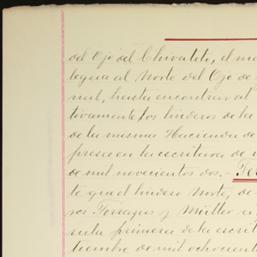 del Ojo del Chivatito, el m
legua al Norte del Ojo de
mil, hasta encontrar al
tivamente los linderos de la
de la misma Hacienda de
presa en la escritura de
de mil novecientos dos.- Te
te que el lindero Norte, de
ros Terrazas y Müller en
sula primera de la escrit
tiembre de mil ochocient